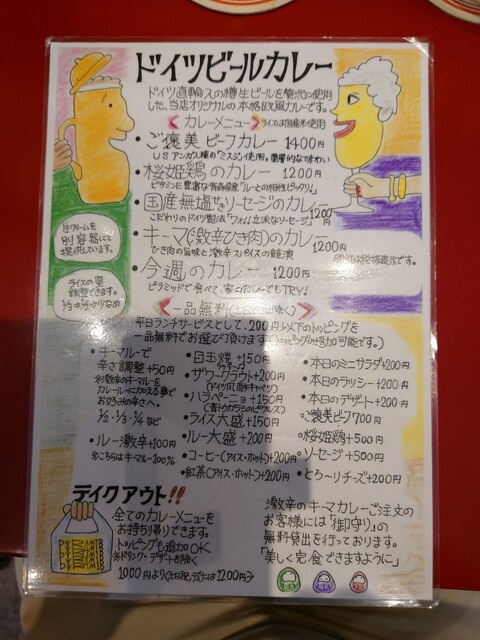 ドイツビールカレー
ドイツ直輸入の樽生ビールを贅沢に使用
した、当店オリジナルの本格欧風カレーです。
カレーメニュー ライスは国産米使用
・ご褒美ビーフカレー 1400円
USアンガス種の「ミスジ」使用。重層的な味わい
・桜姫鶏のカレー 1200円
ビタミンE豊富な青森県産「ルーとの相性ピッタリ」
・国産無塩せきソーセージのカレー 1200円
こだわりのドイツ製法「ワォ!立派なソーセージ」
・キーマ(激辛ひき肉)のカレー 1200円
ひき肉の旨味と激辛スパイスの競演
・今週のカレー 1200円
ピラミッドで食べて、家のカレーでもTRY!
生クリームを
別容器にて
提供しています。
ライスの量
調整できます。
税抜表示です。
一品無料
平日ランチサービスとして、200円以下のトッピングを
一品無料でお選び頂けます
・キーマルーで
辛さ調整+50円
※激辛のキーマルーを
カレールーに加える事で
お好みの辛さへ。
1/2・1/3・1/4など
・ルー激辛+100円
※こちらはキーマルー100%
・目玉焼+150円
・ザワークラウト+200円
(ドイツ風酢キャベツ)
・ハラペーニョ+150円
(青トウガラシのピクルス)
・ライス大盛+150円
・ルー大盛+200円
・コーヒー(アイス・ホット)+200円
・紅茶(アイス・ホット)+200円
・本日のミニサラダ+200円
・本日のラッシー+200円
・本日のデザート+200円
・ご褒美ビーフ700円
・桜姫鶏+500円
・ソーセージ+500円
・とろ~りチーズ+200円
テイクアウト!!
全てのカレーメニューを
お持ち帰りできます。
トッピングも追加OK
※ドリンク・デザートを除く
1000円より
激辛のキーマカレーご注文の
お客様には「御守り」の
無料貸出を行っております。
「美しく完食できますように」